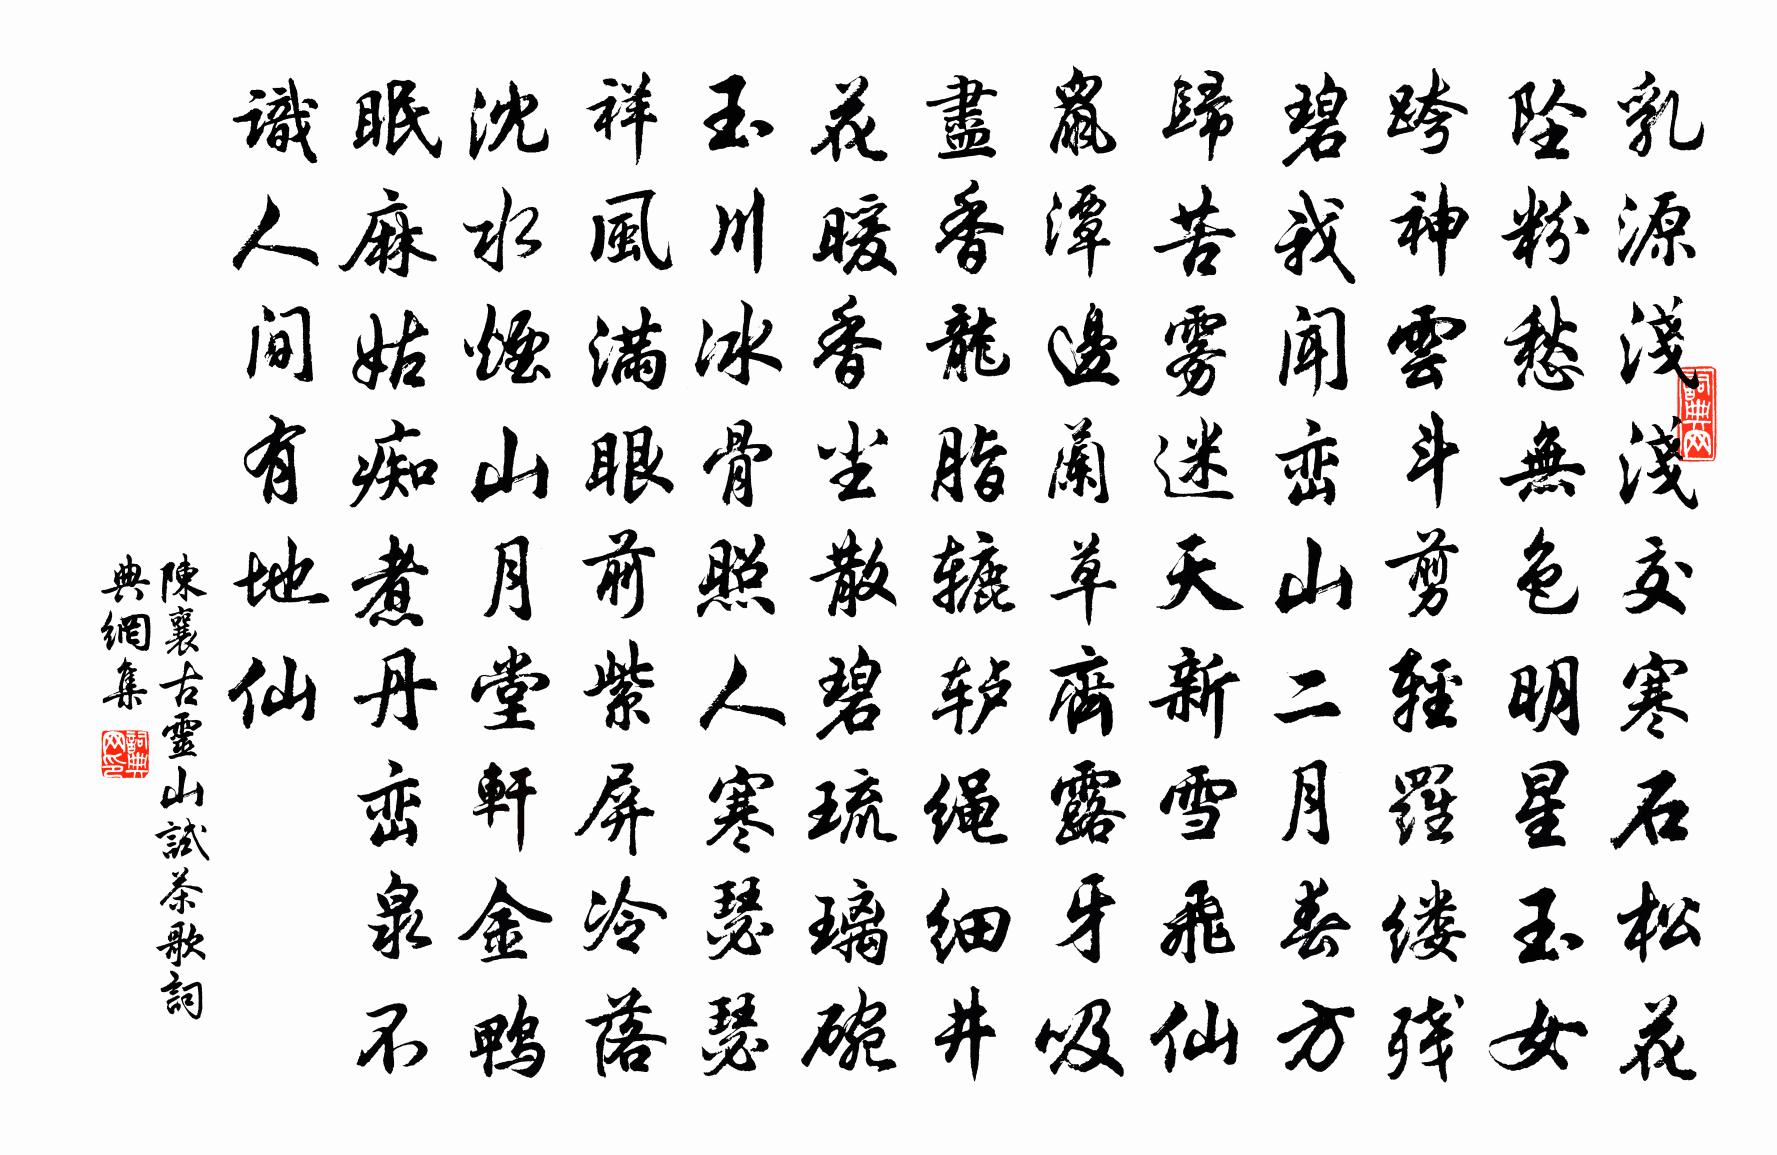 乳源淺淺交寒石松花
坠粉愁無色明星玉女
跨神雲斗剪輕羅缕残
碧我闻峦山二月春方
歸苦雾迷天新雪飛仙
鼠潭邊蘭草齊露牙吸
盡香龍脂辘轳绳细井
花暖香尘散碧琉璃碗
玉川冰骨照人寒瑟瑟
祥風满眼前紫屏冷落
沈水煙山月堂軒金鸭
眠麻姑痴煮丹峦泉不
識人间有地仙
陳襄古靈山試茶歌詞
典網集
詞典网
詞典网印